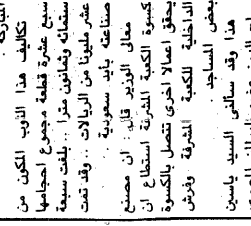 المباركة.
تكاليف هذا الثوب المكون من
سبع عشرة قطعة مجموع احجامها
ستمائة وثمانون مترا .. بلغت سبعة
عشر مليونا من الريالات .. وقد تمت
صناعته بأيد سعودية.
معالي الوزير قال: ان مصنع
كسوة الكعبة المشرفة استطاع ان
يحقق اعمالا اخرى تتصل بالكسوة
الداخلية للكعبة المشرفة وفرش
بعض المساجد.
هذا وقد سألني السيد ياسين